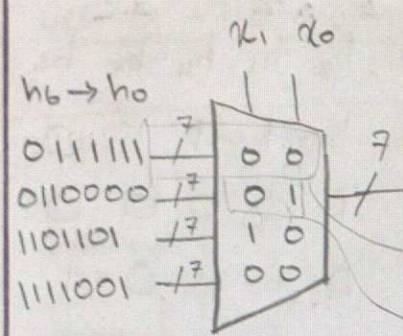 x₁ x₀
h₆ → h₀
7
0111111 7 0 0
0110000 7 0 1
1101101 7 1 0
1111001 7 0 0